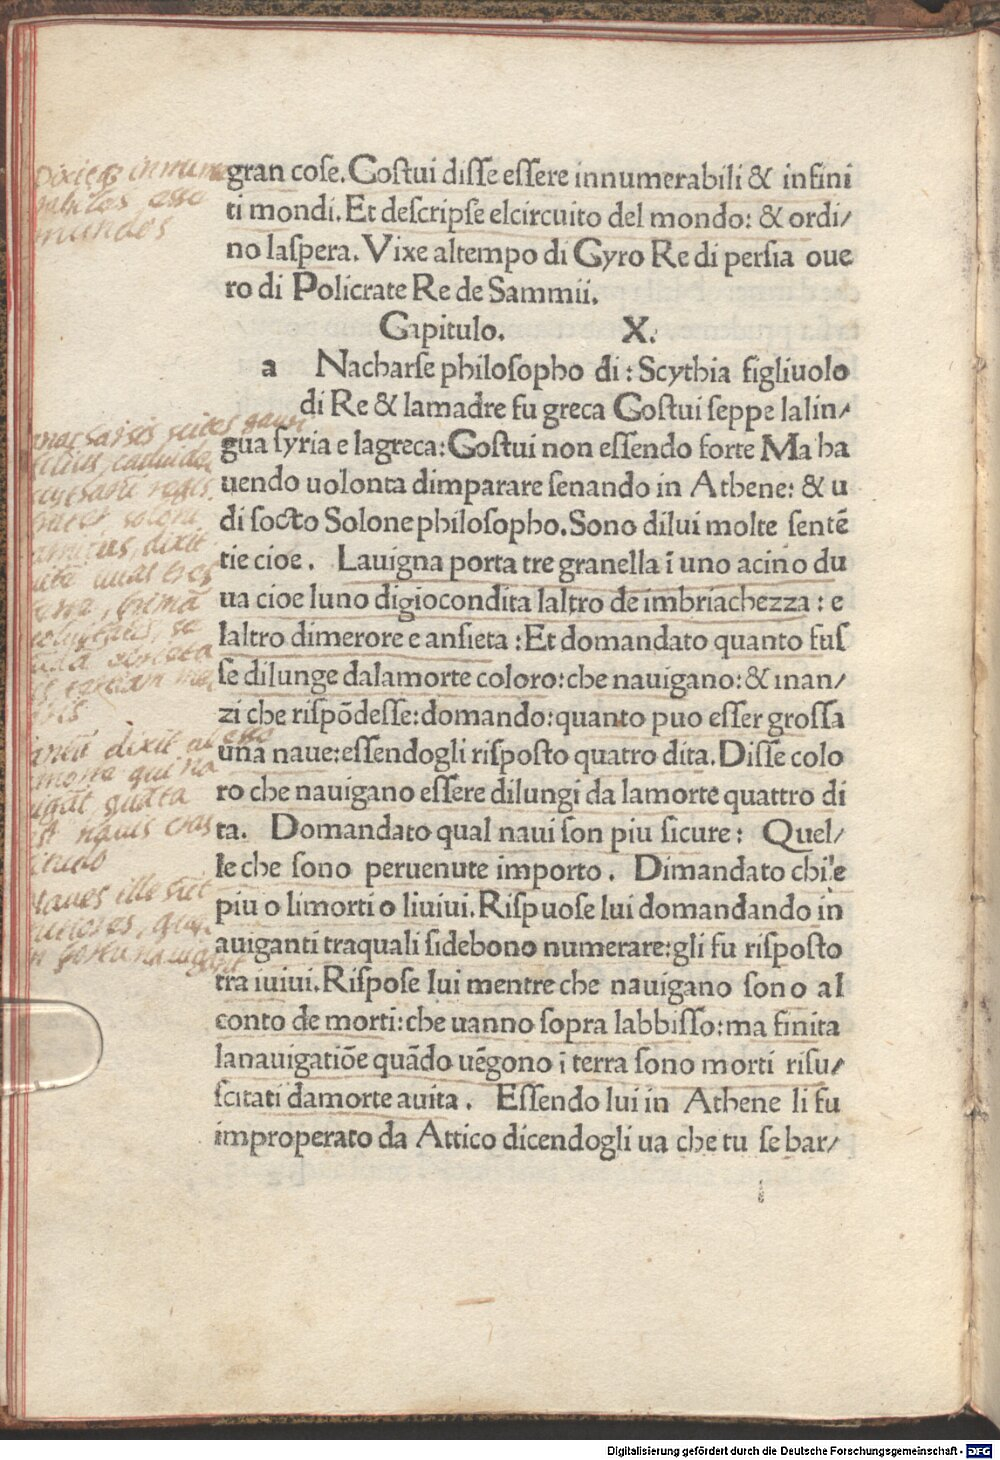 gran coſe. Coſtui diſſe eſſere innumerabili & infini
ti mondi. Et deſcripſe elcircuito del mondo: & ordi/
no laſpera. Vixe altempo di Cyro Re di perſia oue
ro di Policrate Re de Sammii.
Capitulo. X.
a Nacharſe philoſopho di: Scythia figliuolo
di Re & lamadre fu greca Coſtui ſeppe lalin/
gua ſyria e lagreca: Coſtui non eſſendo forte Ma ha
uendo uolonta dimparare ſenando in Athene: & u
di ſocto Solone philoſopho. Sono dilui molte ſentē
tie cioe. Lauigna porta tre granella ī uno acino du
ua cioe luno digiocondita laltro de imbriachezza: e
laltro dimerore e anſieta: Et domandato quanto fuſ
ſe dilunge dalamorte coloro: che nauigano: & inan/
zi che riſpōdeſſe: domando: quanto puo eſſer groſſa
una naue: eſſendogli riſpoſto quatro dita. Diſſe colo
ro che nauigano eſſere dilungi da lamorte quattro di
ta. Domandato qual naui ſon piu ſicure: Quel/
le che ſono peruenute importo. Dimandato chi.e
piu o limorti o liuiui. Riſpuoſe lui domandando in
auiganti traquali ſidebono numerare: gli fu riſpoſto
tra iuiui. Riſpoſe lui mentre che nauigano ſono al
conto de morti: che uanno ſopra labbiſſo: ma finita
lanauigatiōe quādo uēgono ī terra ſono morti riſu/
ſcitati damorte auita. Eſſendo lui in Athene li fu
improperato da Attico dicendogli ua che tu ſe bar/
esse
mundos
regis
amicus, dixit
dixit
qui na
navis cras
Naues ille
Digitalisierung gefördert durch die Deutsche Forschungsgemeinschaft - DFG